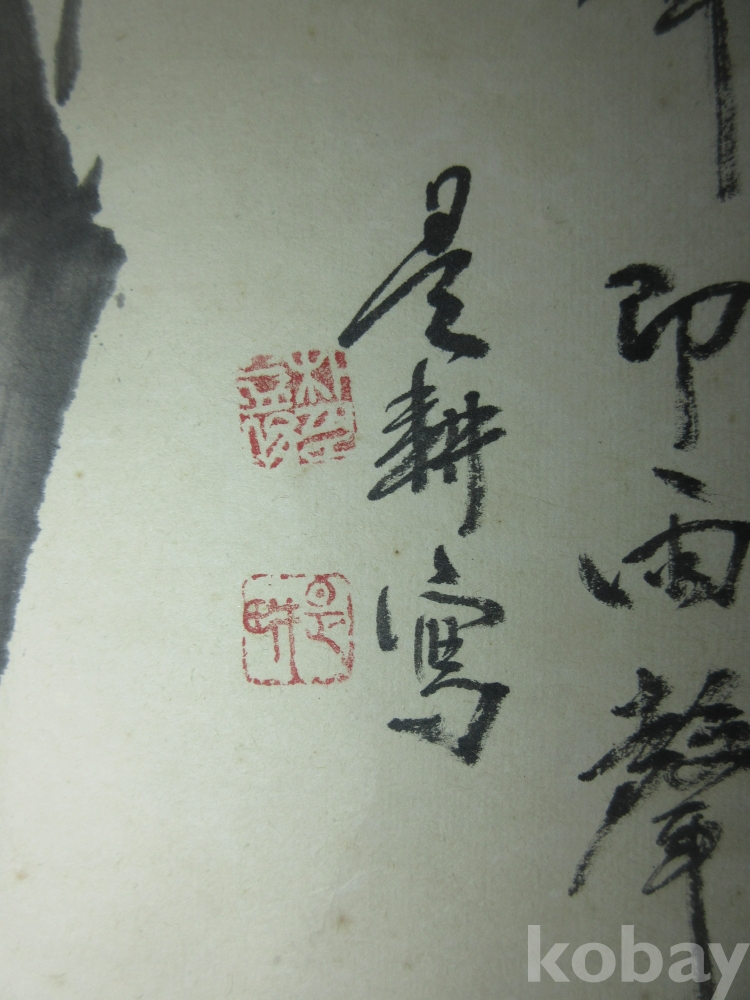 即雨聲
是耕寫
是耕
kobay